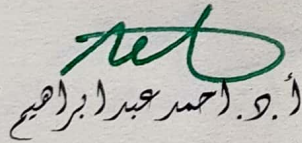 أ.د. احمد عبد ابراهيم